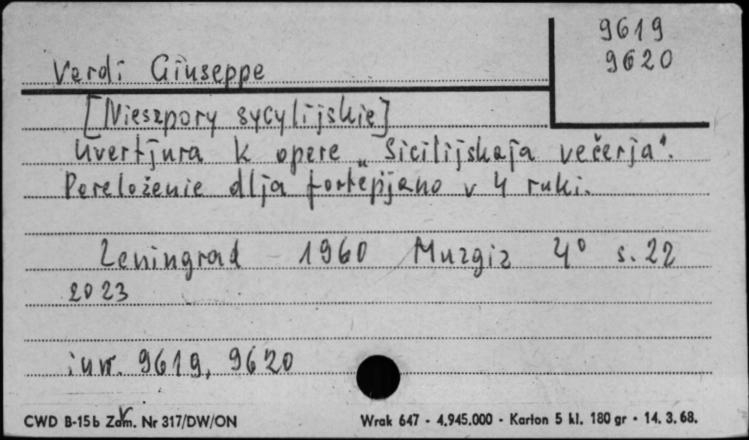 9619
9620
Verdi Giuseppe
[Nieszpory sycylijskie]
Uvertjura k opere „Sicilijskaja večerja".
Pereloženie dlja fortepijano v 4 ruki.
Leningrad 1960 Muzgiz 4° s. 22
2023
inw. 9619, 9620
CWD B-15b Zam. Nr 317/DW/ON
Wrak 647 - 4.945.000 - Karton 5 kl. 180 gr - 14. 3. 68.